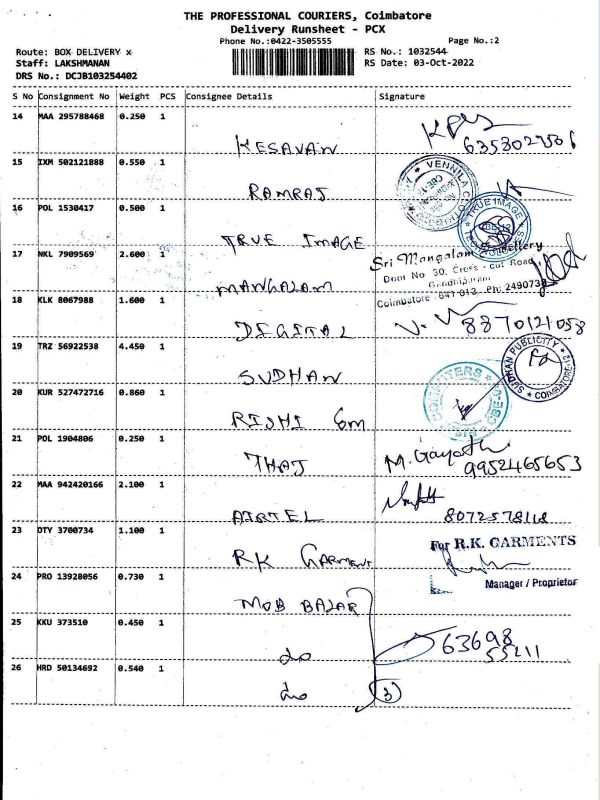 THE PROFESSIONAL COURIERS, Coimbatore
Delivery Runsheet - PCX
Phone No.:0422-3505555 Page No.:2
Route: BOX DELIVERY x RS No.: 1032544
Staff: LAKSHMANAN RS Date: 03-Oct-2022
DRS No.: DCJB103254402
S No Consignment No Weight PCS Consignee Details Signature
14 MAA 295788468 0.250 1
KESAVAN
15 IXM 502121888 0.550 1
VENNILA
RAMRAJ
16 POL 1530417 0.500 1
TRUE IMAGE
TRUE IMAGE
17 NKL 7909569 2.600 1
Sri Mangalam Jewellery
Door No 30, Cross - cut Road
Gandhipuram
Coimbatore - 641 012
MANGALAM
18 KLK 8067988 1.600 1
DIGITAL 8870121058
19 TRZ 56922538 4.450 1
SUDHAN PUBLICITY
COIMBATORE-12
SUDHAN
20 KUR 527472716 0.860 1
RISHI Com
21 POL 1904806 0.250 1
THAJ M. Gayathri
9952465653
22 MAA 942420166 2.100 1
AIRTEL
23 DTY 3700734 1.100 1
For R.K. GARMENTS
RK GARMENT
24 PRO 13928056 0.730 1
Manager / Proprietor
MOB BAZAR
25 KKU 373510 0.450 1
63698
55211
do
26 HRD 50134692 0.540 1
do 3